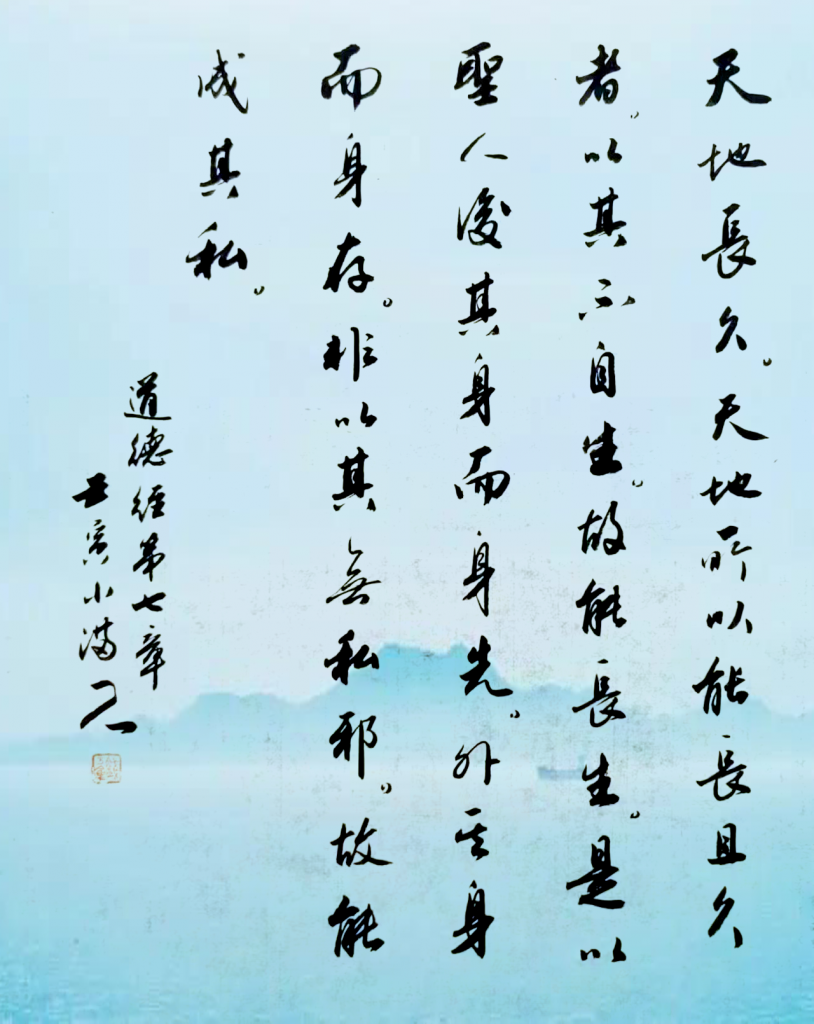 天地長久。天地所以能長且久
者。以其不自生。故能長生。是以
聖人後其身而身先。外其身
而身存。非以其無私邪。故能
成其私。
道德經第七章
壬寅小滿